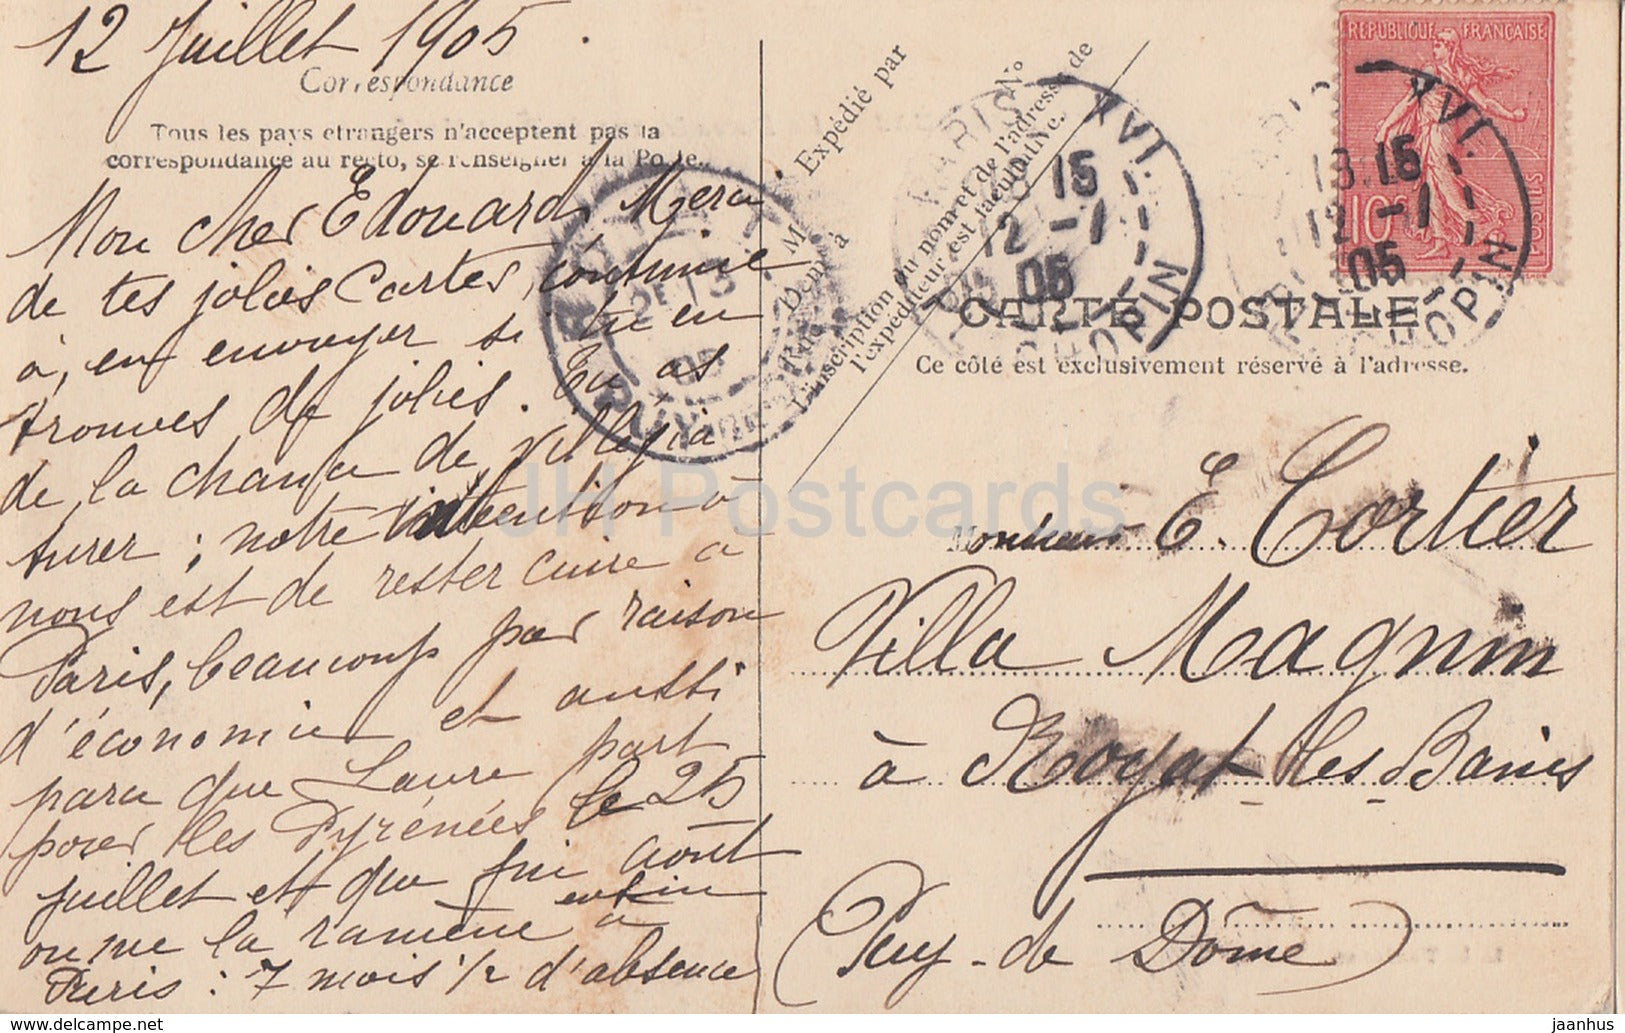 12 Juillet 1905.
Correspondance
Tous les pays etrangers n'acceptent pas la
correspondance au recto, se renseigner à la Poste.
Mon cher Edouard, Merci
de tes jolies Cartes, continue
à, en envoyer si tu en
trouves de jolies. Tu as
de la chance de villégia
turer ; notre intention à
nous est de rester cuire à
Paris, beaucoup par raison
d'économie et aussi
parce que Laure part
pour les Pyrénées le 25
juillet et que fin août
on me la ramène enfin à
Paris : 7 mois 1/2 d'absence
M
Expédié par
Demt à
Rue
No
L'inscription du nom et de l'adresse de
l'expéditeur est facultative.
REPUBLIQUE FRANÇAISE
10c
POSTES
PARIS XVI
15
12 - 7
05
CHOPIN
PARIS XVI
18 15
12 - 7
05
CHOPIN
ROYAT
13
05
PUY-DE-DOME
CARTE POSTALE
Ce côté est exclusivement réservé à l'adresse.
Monsieur E. Cortier
Villa Magnin
à Royat-les-Bains
(Puy-de Dôme)
JH Postcards
www.delcampe.net
jaanhus